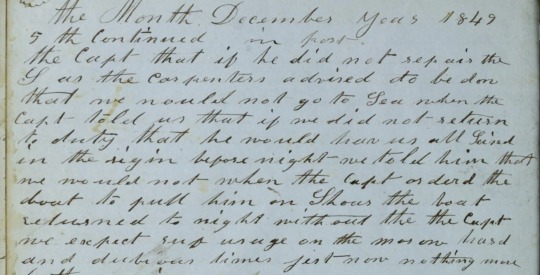 the Month December Year 1849
5 th Continued in port
the Capt that if he did not repair the
S as the Carpenters advised to be don
that we would not go to Sea when the
Capt told us that if we did not return
to duty that he would hav us all
in the rigin before night we told him that
we would not when the Capt orderd the
boat to pull him on Shour the boat
returned to night without the the Capt
we expect ruf usage on the morow hard
and dubious times jest now nothing more